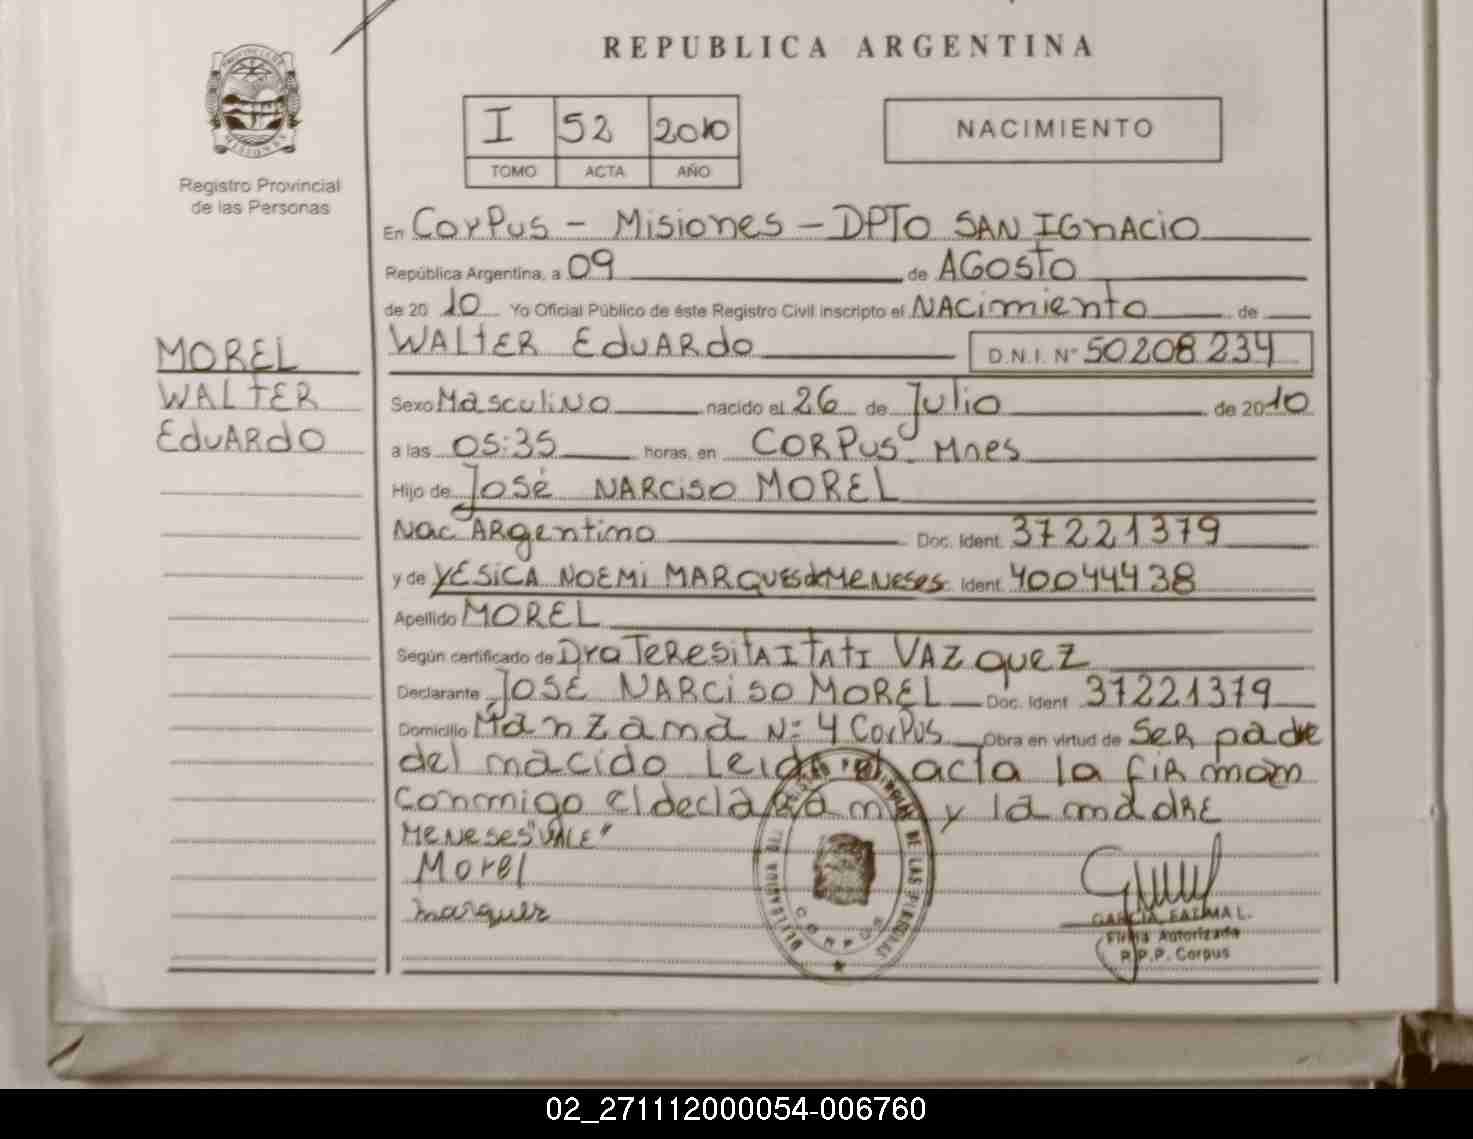 REPUBLICA ARGENTINA
PROVINCIA DE
MISIONES
Registro Provincial
de las Personas
I 52 2010
TOMO ACTA AÑO
NACIMIENTO
En Corpus - Misiones - DPTO SAN IGNACIO
República Argentina, a 09 de AGOSTO
de 20 10 Yo Oficial Público de éste Registro Civil inscripto el NACimiento de
WALTER EDUARDO D.N.I. N° 50208234
MOREL
WALTER
EDUARDO
Sexo Masculino nacido el 26 de Julio de 2010
a las 05:35 horas, en CORPUS - Mnes
Hijo de José NARCISO MOREL
Nac ARgentino Doc. Ident. 37221379
y de YESICA NOEMI MARQUES de MENESES Ident. 40044438
Apellido MOREL
Según certificado de Dra TERESITA ITATI VAZquEZ
Declarante JOSÉ NARCISO MOREL Doc. Ident 37221379
Domicilio Manzana N° 4 Corpus Obra en virtud de SER padre
del nacido Leida el acta la firman
conmigo el declarante y la madre
MENESES "VALE"
Morel
marquez
DE LAS PERSONAS
CORPUS
GARCIA FATIMA L.
Firma Autorizada
R.P.P. Corpus
02_271112000054-006760